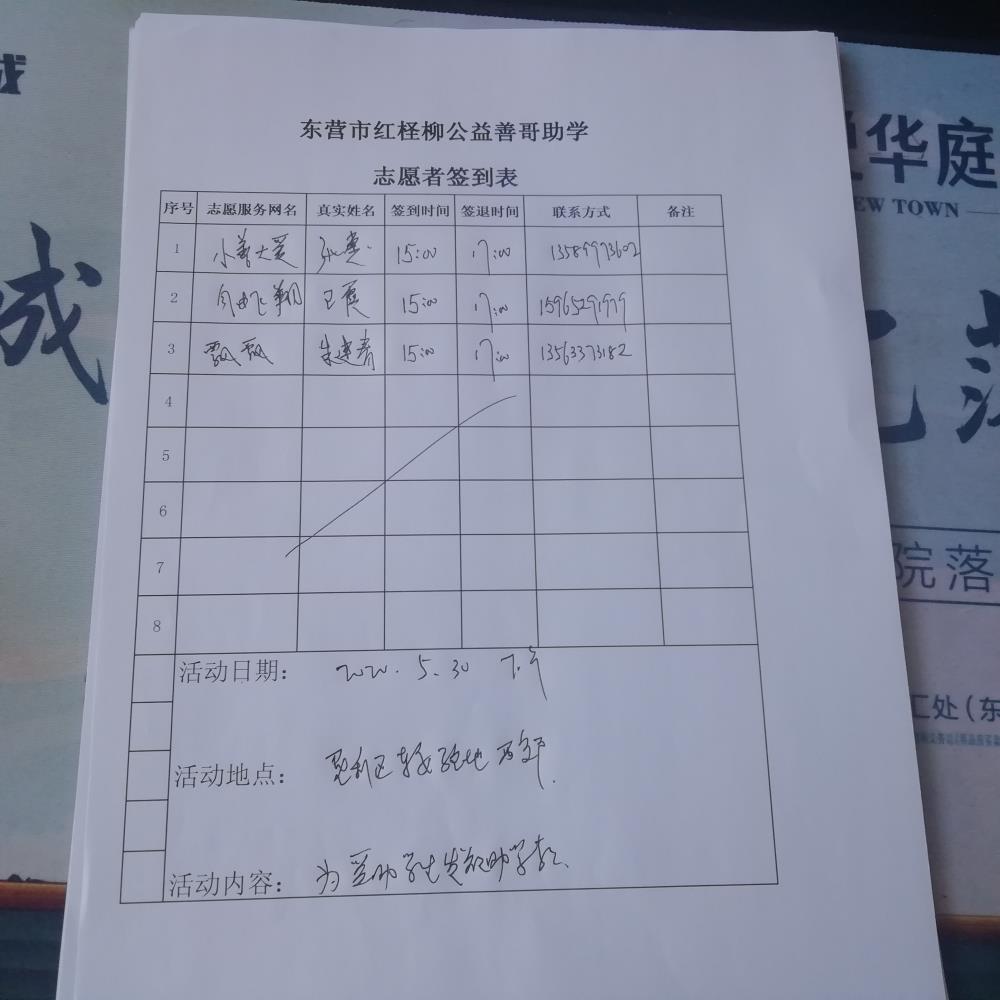 成
东营市红柽柳公益善哥助学
志愿者签到表
序号 志愿服务网名 真实姓名 签到时间 签退时间 联系方式 备注
1 小善大爱 15:00 17:00 13589973602
2 自由飞翔 15:00 17:00 15965291979
3 飘飘 朱建青 15:00 17:00 13563373182
4
5
6
7
8
活动日期： 2020.5.30 下午
活动地点： 垦利区
活动内容： 为受助学生发放助学款、
华庭
EW TOWN
院落
汇处(东